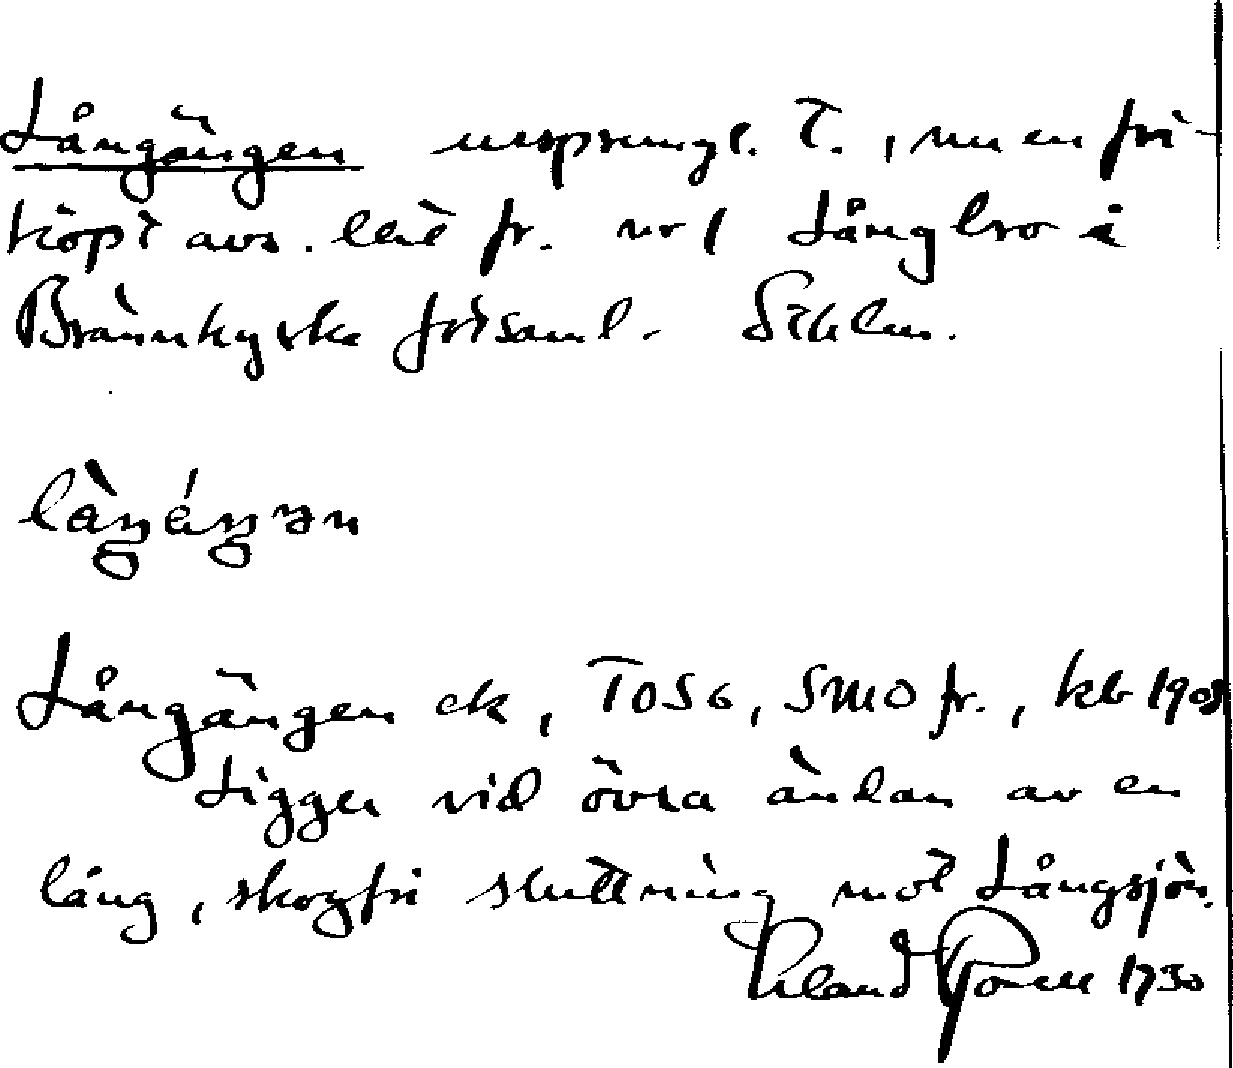 Långängen ursprungl. T., nu en fri-
köpt avs. lht fr. nr 1 Långbro i
Brännkyrka förs. Sthlm.
Långängen ek, TOSö, SMO fr., kb 1908
Ligger vid övre ändan av en
lång, skogfri sluttning mot Långsjön.
Roland 1930